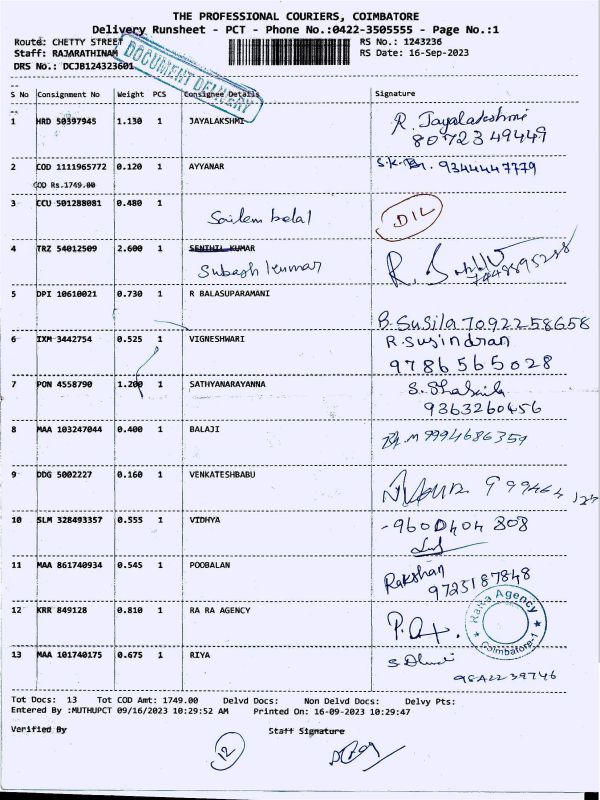 THE PROFESSIONAL COURIERS, COIMBATORE
Delivery Runsheet - PCT - Phone No.:0422-3505555 - Page No.:1
Route: CHETTY STREET RS No.: 1243236
Staff: RAJARATHINAM RS Date: 16-Sep-2023
DRS No.: DCJB124323601
DOCUMENT DELIVERY
S No Consignment No Weight PCS Consignee Details Signature
1 HRD 50397945 1.130 1 JAYALAKSHMI R. Jayalakshmi
8072349449
2 COD 1111965772 0.120 1 AYYANAR 9344447779
COD Rs.1749.00
3 CCU 501288081 0.480 1
Sailem belal DIL
4 TRZ 54012509 2.600 1 SENTHIL KUMAR
Subash kumar
5 DPI 10610021 0.730 1 R BALASUPARAMANI
B. Susila 7092258658
6 IXM 3442754 0.525 1 VIGNESHWARI R. Susindran
9786565028
7 PON 4558790 1.200 1 SATHYANARAYANNA
9363260456
8 MAA 103247044 0.400 1 BALAJI 9994686359
9 DDG 5002227 0.160 1 VENKATESHBABU
10 SLM 328493357 0.555 1 VIDHYA 9600404808
11 MAA 861740934 0.545 1 POOBALAN Rakshan
9725187848
12 KRR 849128 0.810 1 RA RA AGENCY
RaRa Agency
Coimbatore-1
13 MAA 101740175 0.675 1 RIYA
Tot Docs: 13 Tot COD Amt: 1749.00 Delvd Docs: Non Delvd Docs: Delvy Pts:
Entered By :MUTHUPCT 09/16/2023 10:29:52 AM Printed On: 16-09-2023 10:29:47
Verified By Staff Signature
12